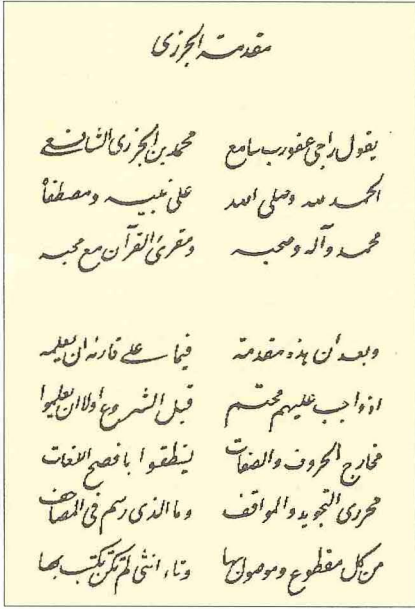 مقدمة الجزرى
يقول راجى عفو رب سامع محمد بن الجزرى الشافعى
الحمد لله وصلى الله على نبيه ومصطفاه
محمد وآله وصحبه ومقرئ القرآن مع محبه
وبعد ان هذه مقدمة فيما على قارئه ان يعلمه
اذ واجب عليهم محتم قبل الشروع اولا ان يعلموا
مخارج الحروف والصفات لينطقوا بافصح اللغات
محررى التجويد والمواقف وما الذى رسم فى المصاحف
من كل مقطوع وموصول بها وتاء انثى لم تكن تكتب بها